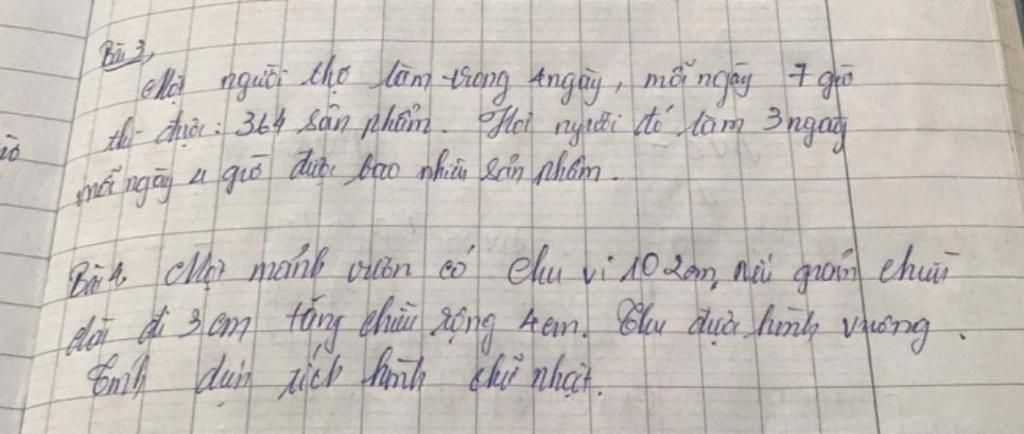 Bài 3,
Một người thợ làm trong 4 ngày, mỗi ngày 7 giờ
thì được: 364 sản phẩm. Hỏi người đó làm 3 ngày
mỗi ngày 4 giờ được bao nhiêu sản phẩm.
Bài 4. Một mảnh vườn có chu vi 102cm, nếu giảm chiều
dài đi 3 cm tăng chiều rộng 4cm. Thu được hình vuông.
Tính diện tích hình chữ nhật.